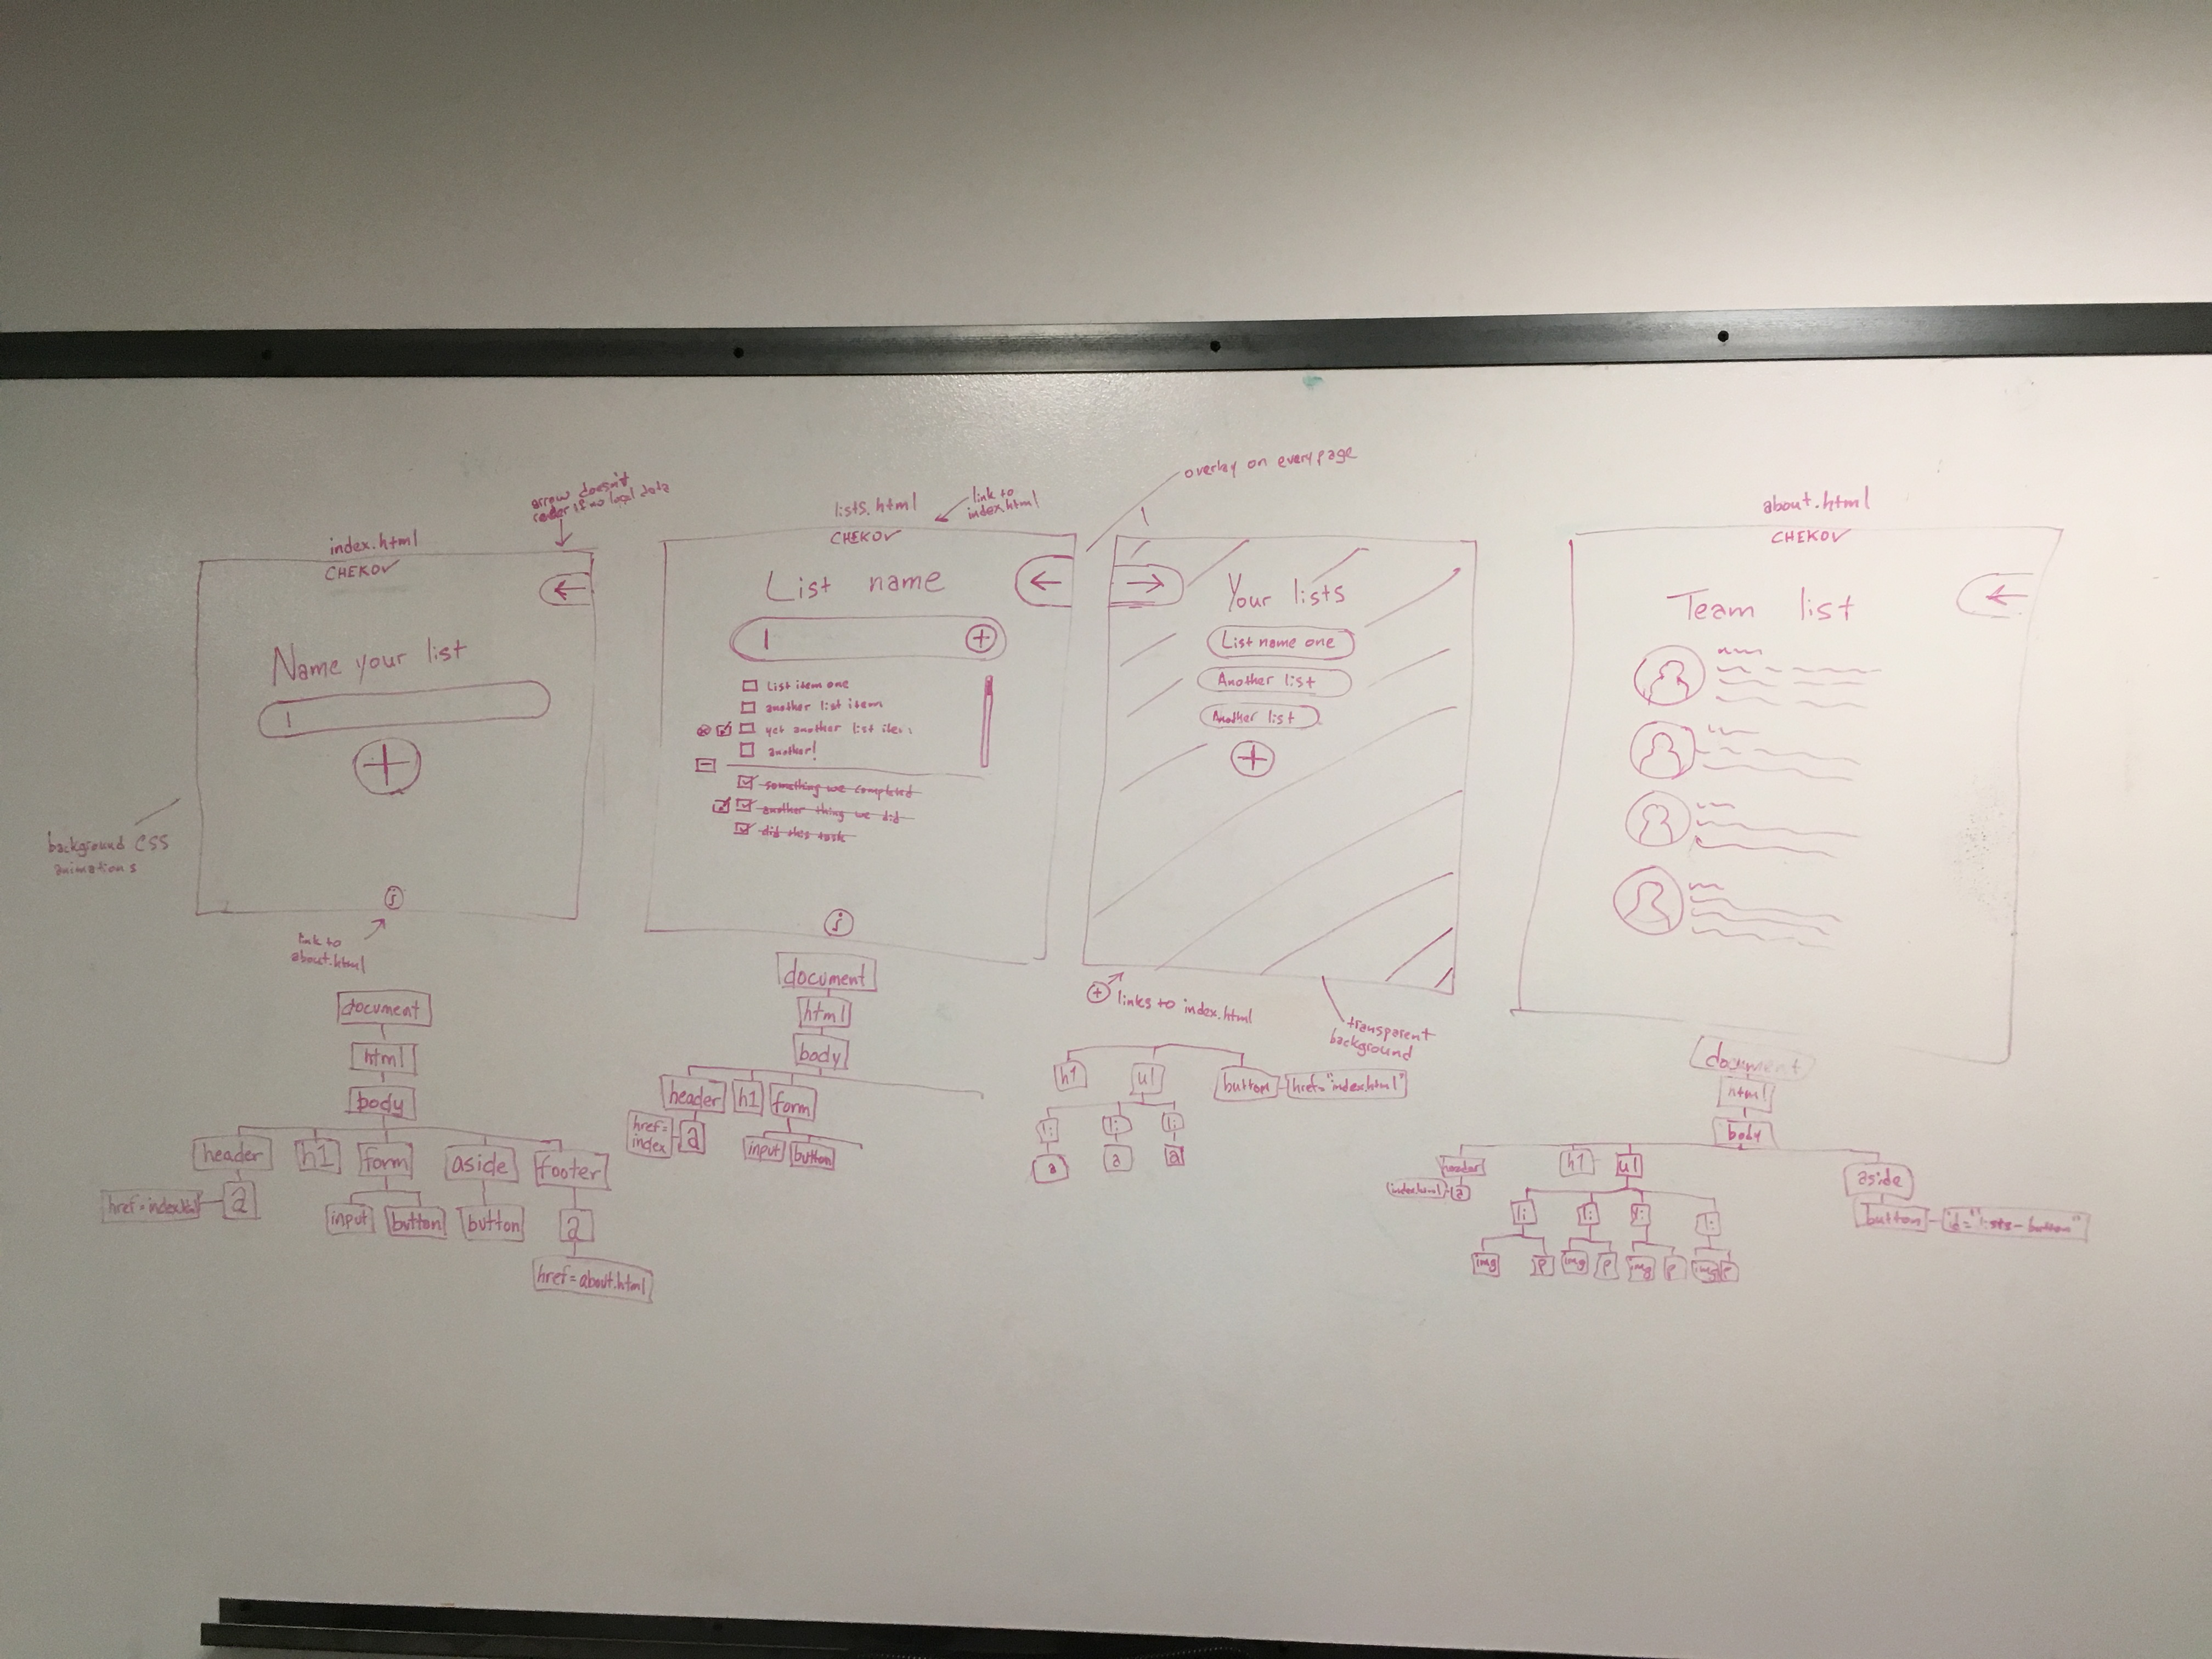 arrow doesn't
render if no local data
index.html
CHEKOV
←
Name your list
+
background CSS
animations
i
link to
about.html
document
html
body
header
h1
form
aside
footer
href=index.html
a
input
button
button
a
href=about.html
lists.html
link to
index.html
CHEKOV
List name
←
+
List item one
another list item
yet another list item
another!
something we completed
another thing we did
did this task
i
document
html
body
header
h1
form
href=
index
a
input
button
overlay on every page
→
Your lists
List name one
Another list
Another list
+
+ links to index.html
transparent
background
h1
ul
button
href="index.html"
li
li
li
a
a
a
about.html
CHEKOV
Team list
←
document
html
body
header
h1
ul
aside
index.html
a
li
li
li
li
button
id="lists-button"
img
p
img
p
img
p
img
p